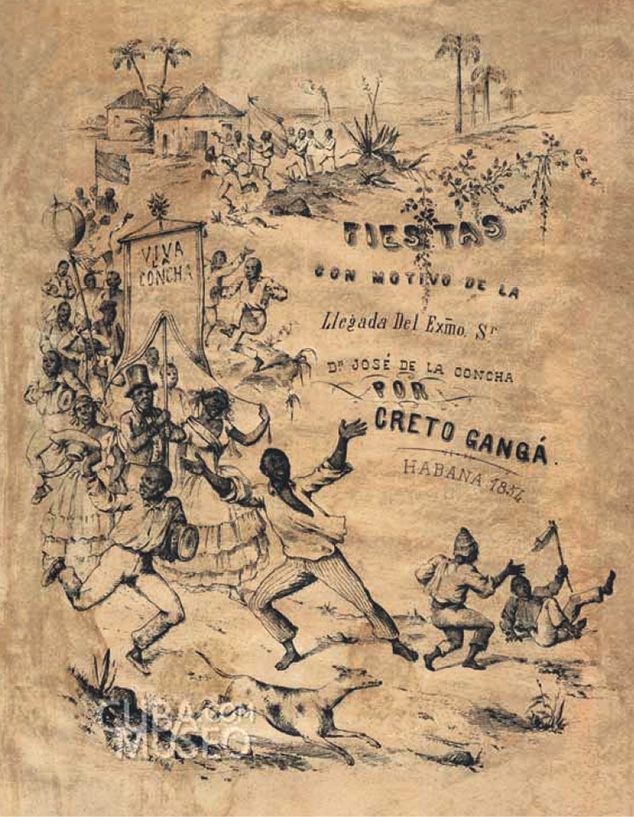 VIVA
CONCHA
FIESTAS
CON MOTIVO DE LA
Llegada Del Exm̃o. Sr
Dn JOSÉ DE LA CONCHA
POR
CRETO GANGÁ.
HABANA 1854
CUBA.COM
MUSEO